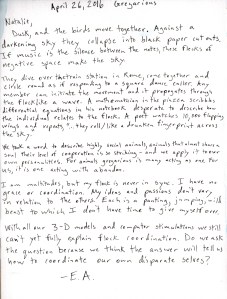 April 26, 2016 Gregarious
Natalie,
Dusk, and the birds move together. Against a
darkening sky they collapse into black paper cut outs.
If music is the silence between the notes, these flocks of
negative space make the sky.
They dive over the train station in Rome, come together and
circle round as if responding to a square dance caller. Any
member can initiate the movement and it propagates through
the flock like a wave. A mathematician in the piazza scribbles
differential equations in his notebook desperate to describe how
the individual relates to the flock. A poet watches 10,000 flapping
wings and repeats, "they roll / like a drunken fingerprint across
the sky."
We took a word to describe highly social animals, animals that almost share a
soul, their level of cooperation is so striking - and we apply it to our
own personalities. For animals gregarious is many acting as one. For
us, it is one acting with abandon.
I am multitudes, but my flock is never in sync. I have no
grace or coordination. My ideas and passions don't vary
in relation to the others. Each is a panting, jumping, wild
beast to which I don't have time to give myself over.
With all our 3-D models and computer stimulations we still
can't yet fully explain flock coordination. Do we ask
the question because we think the answer will tell us
how to coordinate our own disparate selves?
- E.A.